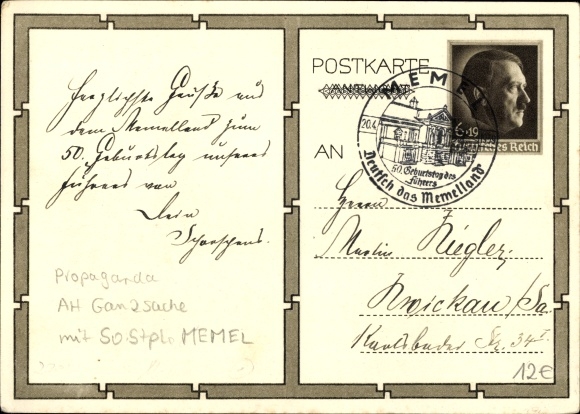 Herzlichste Grüße aus
dem Memelland zum
50. Geburtstag unseres
Führers von
Dein
Propaganda
AH Ganzsache
mit So.Stpl. MEMEL
POSTKARTE
MEMEL
20.4
50. Geburtstag des
Führers
Deutsch das Memelland
6+19
Deutsches Reich
AN
Herrn
Martin Riegler
Zwickau/Sa.
Karlsbader Str. 34I
12€